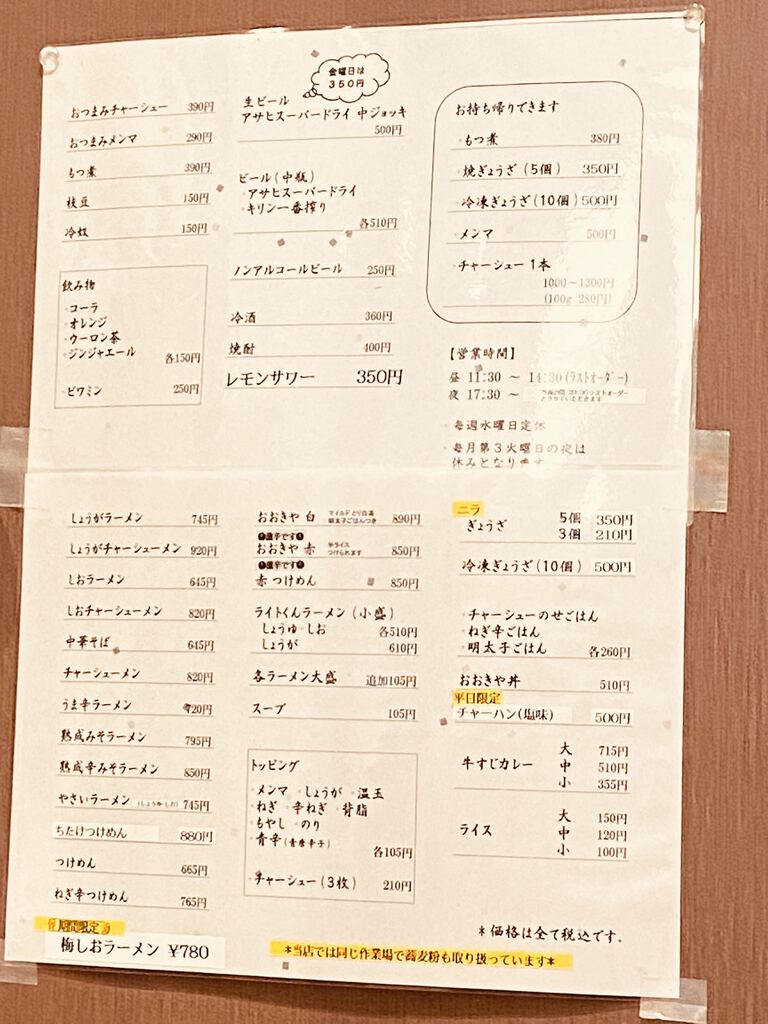 おつまみチャーシュー 390円
おつまみメンマ 290円
もつ煮 390円
枝豆 150円
冷奴 150円
飲み物
・コーラ
・オレンジ
・ウーロン茶
・ジンジャエール 各150円
・ビワミン 250円
金曜日は
350円
生ビール
アサヒスーパードライ 中ジョッキ
500円
ビール(中瓶)
・アサヒスーパードライ
・キリン一番搾り
各510円
ノンアルコールビール 250円
冷酒 360円
焼酎 400円
レモンサワー 350円
お持ち帰りできます
・もつ煮 380円
・焼ぎょうざ(5個) 350円
・冷凍ぎょうざ(10個) 500円
・メンマ 500円
・チャーシュー1本
1000～1300円
(100g 280円)
【営業時間】
昼 11:30 ～ 14:30(ラストオーダー)
夜 17:30 ～
・毎週水曜日定休
・毎月第3火曜日の夜は
休みとなります
しょうがラーメン 745円
しょうがチャーシューメン 920円
しおラーメン 645円
しおチャーシューメン 820円
中華そば 645円
チャーシューメン 820円
うま辛ラーメン 720円
熟成みそラーメン 795円
熟成辛みそラーメン 850円
やさいラーメン (しょうゆ・しお) 745円
ちたけつけめん 880円
つけめん 665円
ねぎ辛つけめん 765円
期間限定
梅しおラーメン ￥780
おおきや 白 マイルドとり白湯 明太子ごはんつき 890円
激辛です
おおきや 赤 半ライス つけられます 850円
激辛です
赤つけめん 850円
ライトくんラーメン(小盛)
しょうゆ・しお 各510円
しょうが 610円
各ラーメン大盛 追加105円
スープ 105円
トッピング
・メンマ ・しょうが ・温玉
・ねぎ ・辛ねぎ ・背脂
・もやし ・のり
・青辛(青唐辛子)
各105円
・チャーシュー(3枚) 210円
ニラ
ぎょうざ 5個 350円
3個 210円
冷凍ぎょうざ(10個) 500円
・チャーシューのせごはん
・ねぎ辛ごはん
・明太子ごはん 各260円
おおきや丼 510円
平日限定
チャーハン(塩味) 500円
牛すじカレー 大 715円
中 510円
小 355円
ライス 大 150円
中 120円
小 100円
＊価格は全て税込です.
＊当店では同じ作業場で蕎麦粉も取り扱っています＊